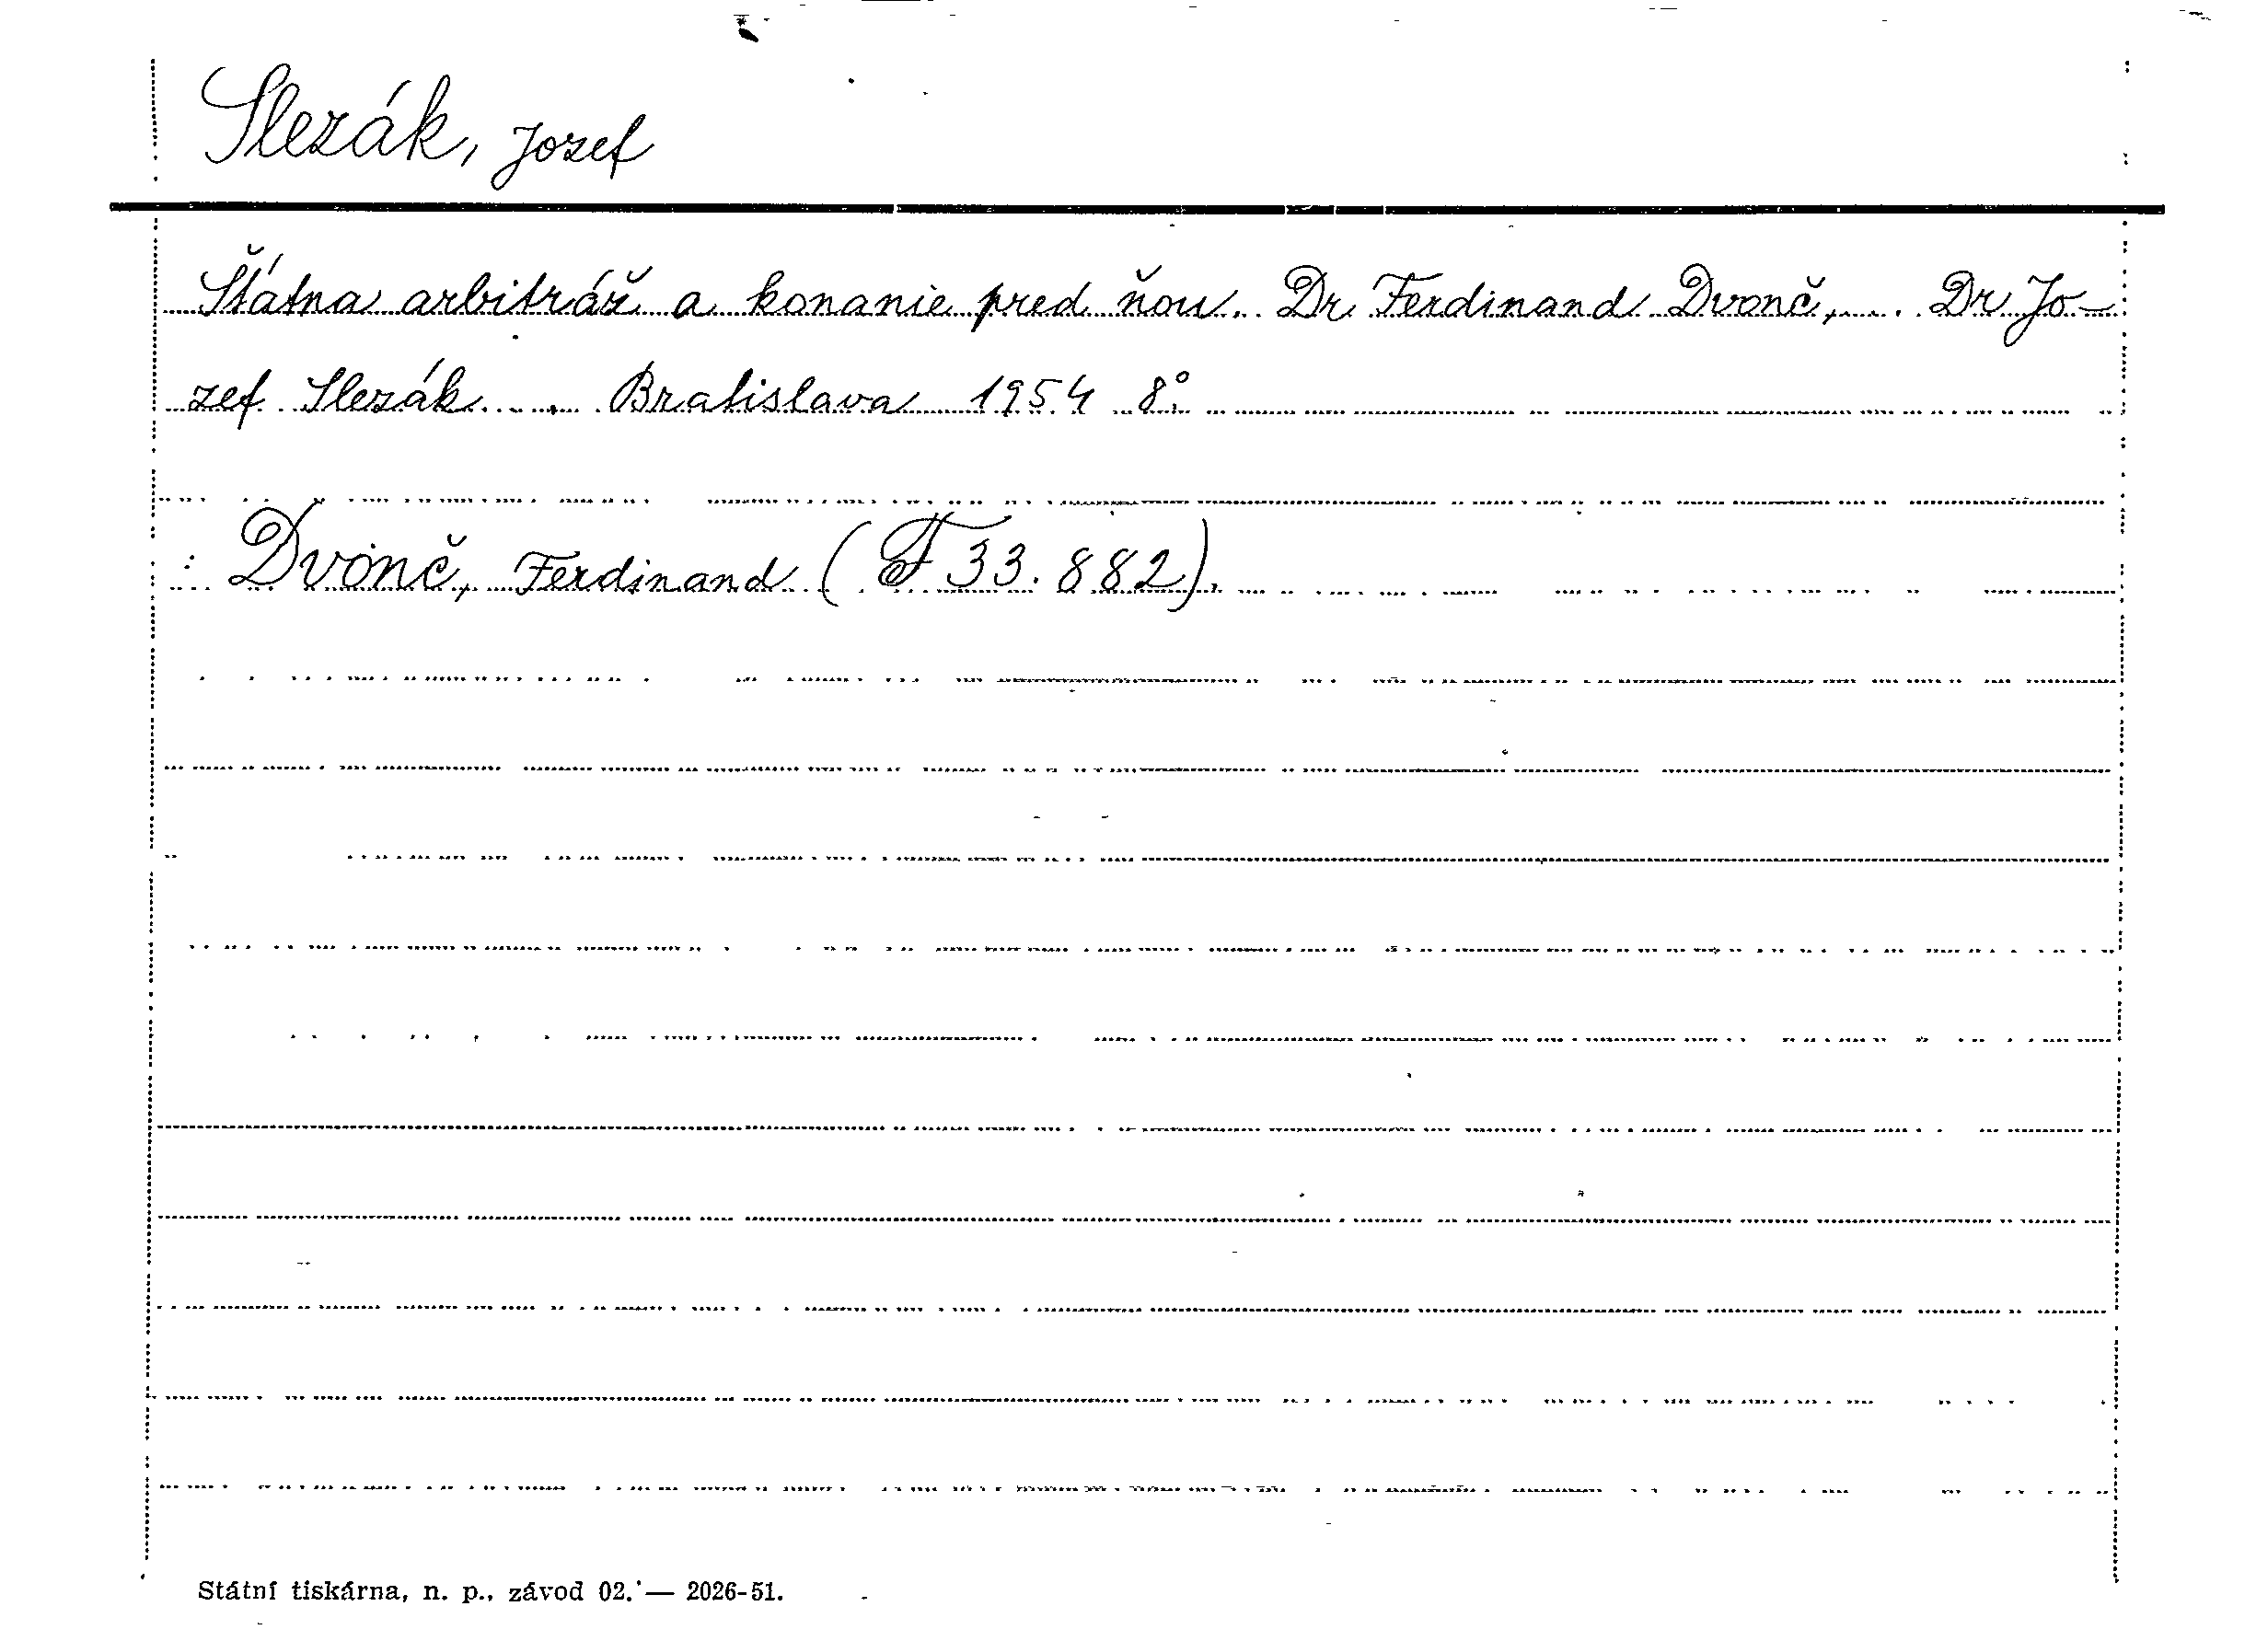 Slezák, Jozef
Štátna arbitráž a konanie pred ňou. Dr Ferdinand Dvonč, ... Dr Jo-
zef Slezák ... Bratislava 1954 8°.
: Dvonč, Ferdinand (F 33.882).
Státní tiskárna, n. p., závod 02. — 2026-51.